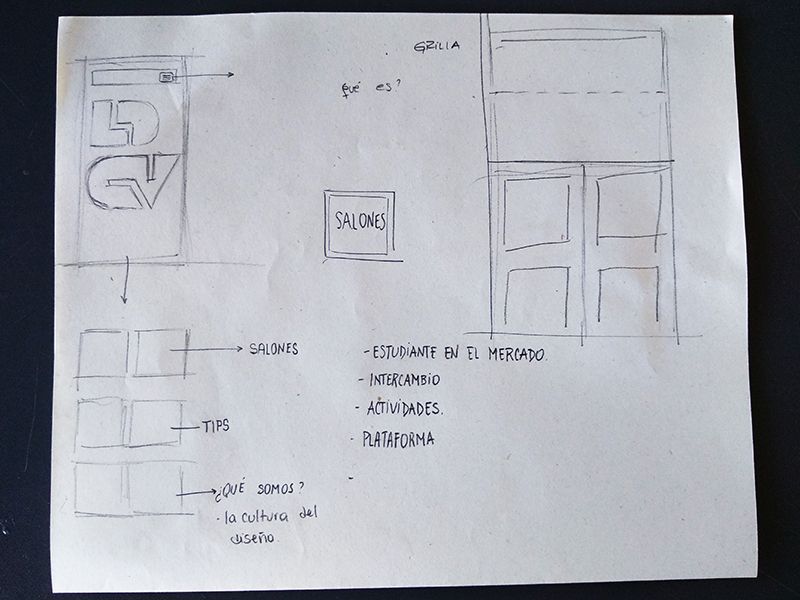 GRILLA
qué es?
LD
GV
SALONES
SALONES
TIPS
¿QUÉ SOMOS?
· la cultura del
diseño.
- ESTUDIANTE EN EL MERCADO.
- INTERCAMBIO
- ACTIVIDADES.
- PLATAFORMA
-